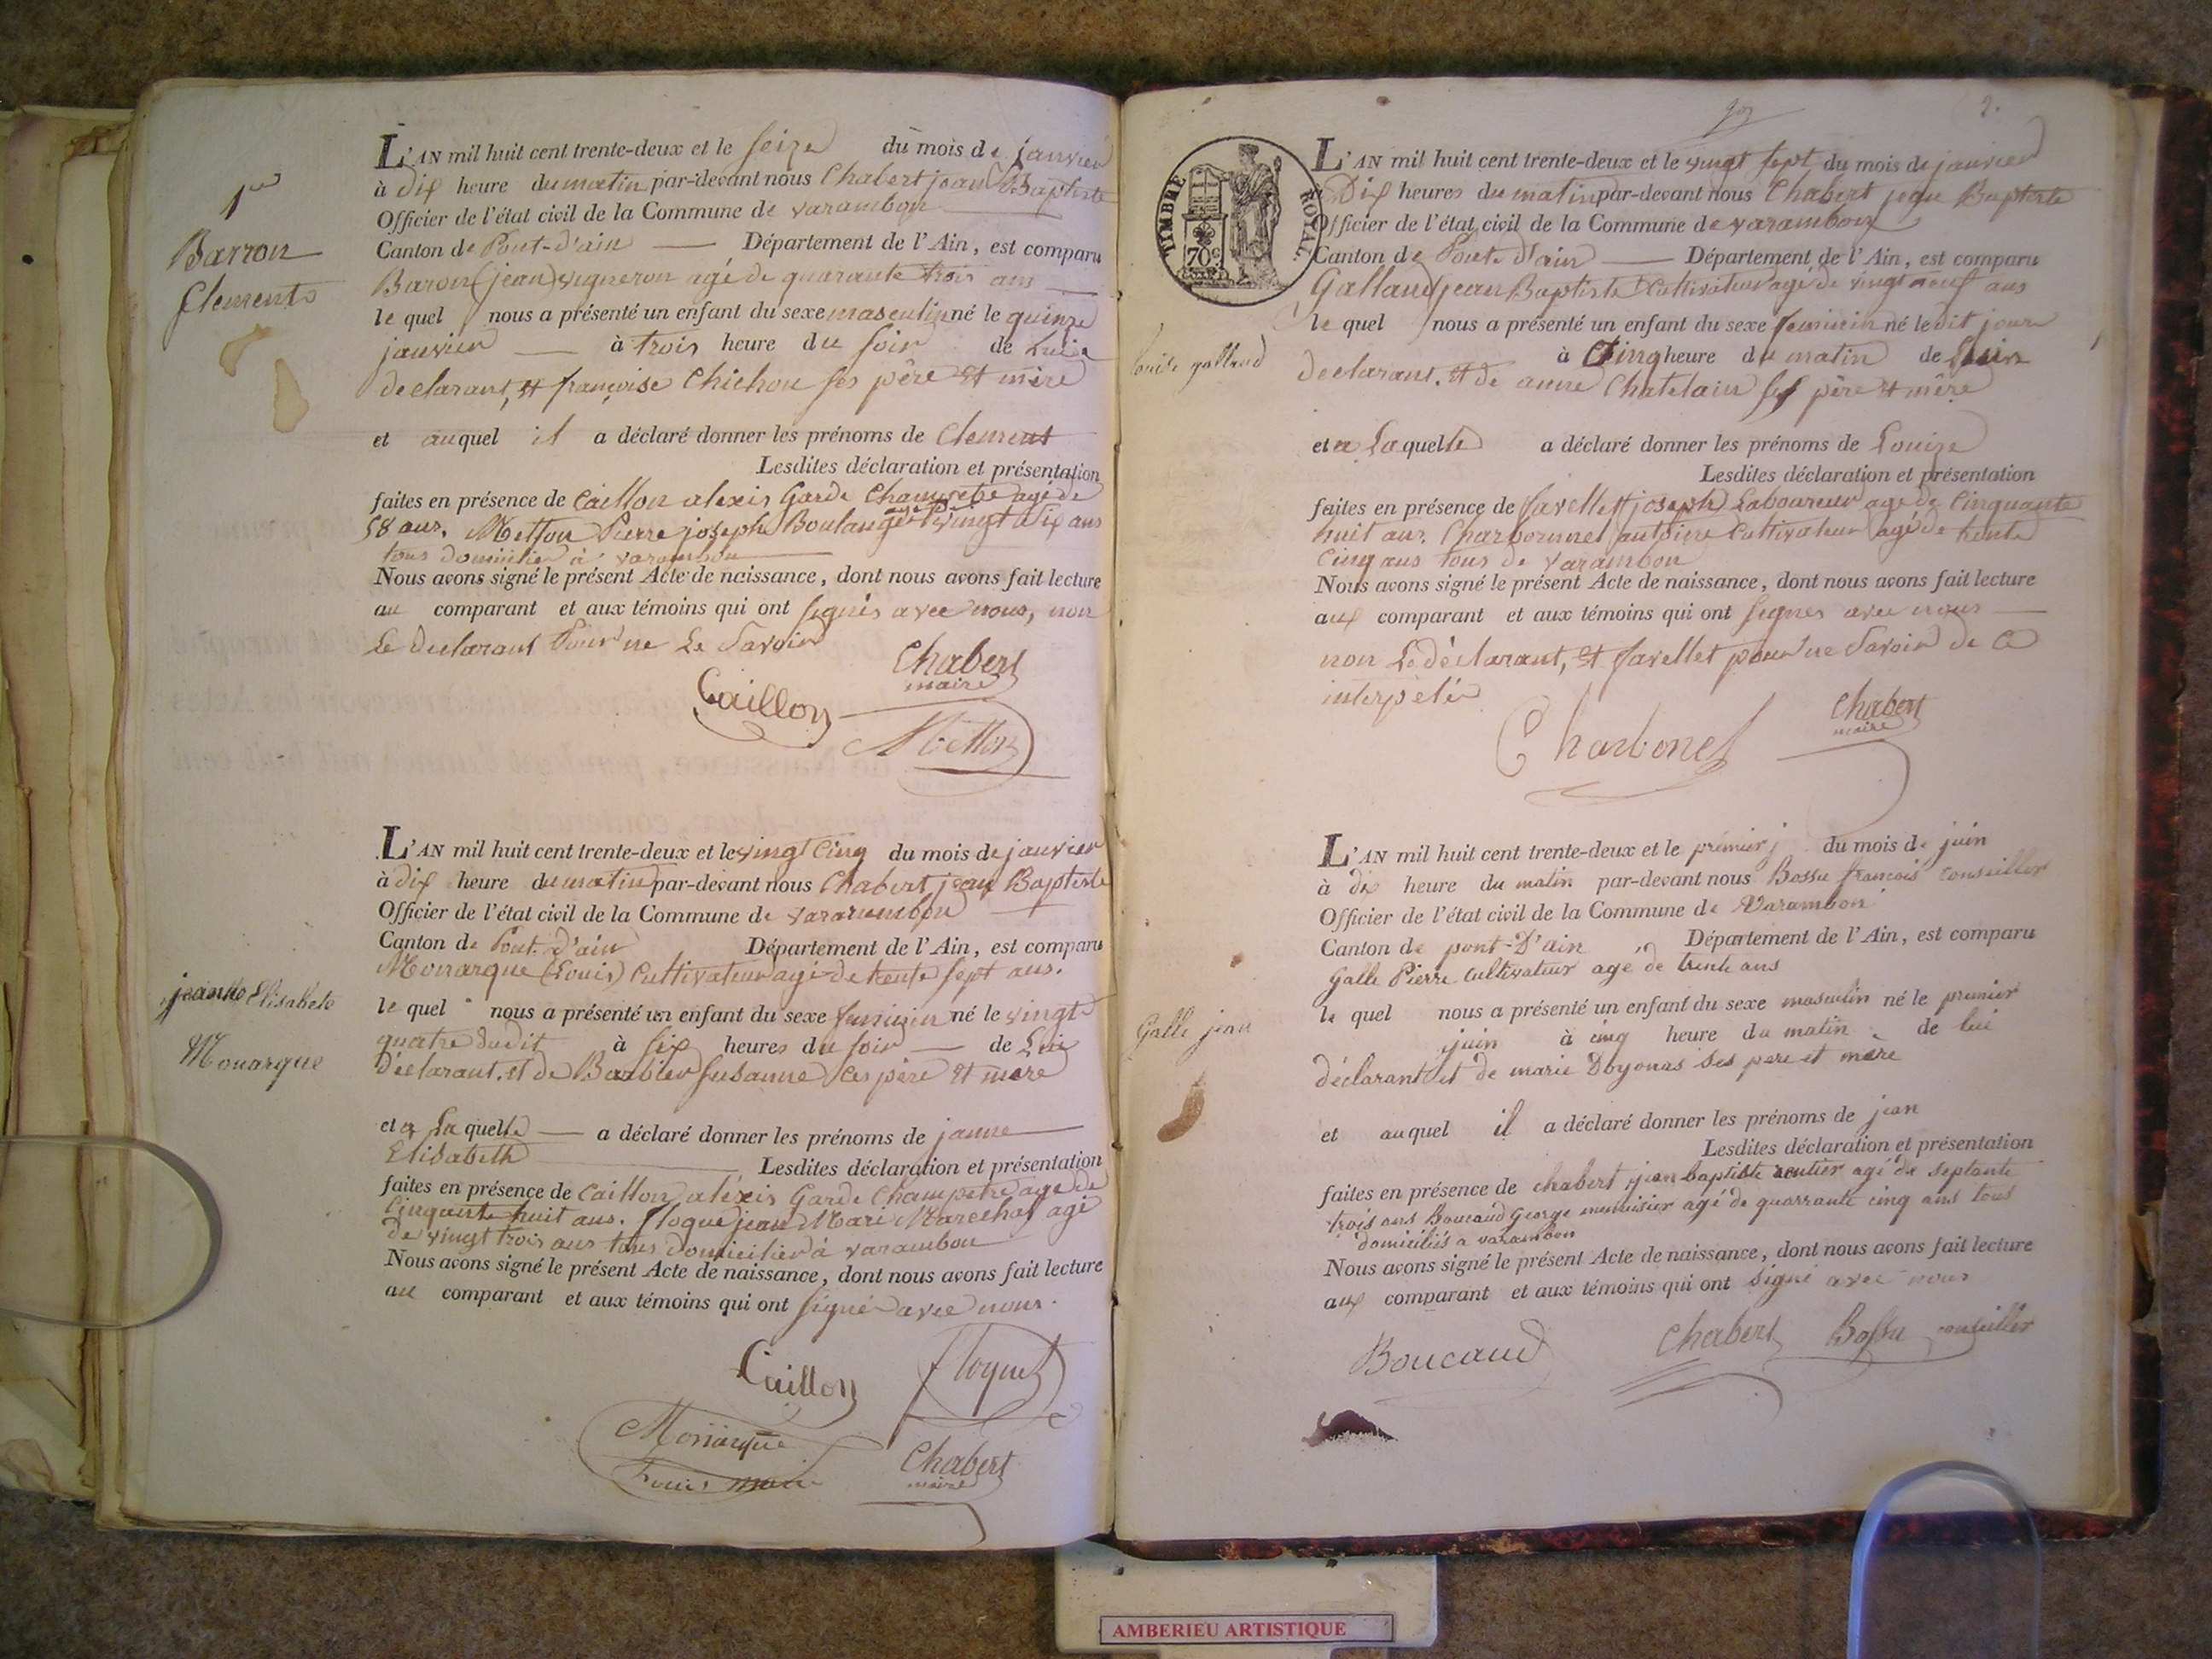 1er
Barron
Clement
L'AN mil huit cent trente-deux et le seize du mois de janvier
à dix heure du matin par-devant nous Chabert jean Baptiste
Officier de l'état civil de la Commune de varambon
Canton de Pont-d'ain Département de l'Ain, est comparu
Baron (jean) vigneron agé de quarante trois ans
le quel nous a présenté un enfant du sexe masculin né le quinze
janvier à trois heure du soir de lui
declarant, et françoise Chichon ses père et mère
et auquel il a déclaré donner les prénoms de Clement
Lesdites déclaration et présentation
faites en présence de Caillon alexis Garde Champetre agé de
58 ans. Metton Pierre joseph Boulanger agé de vingt six ans
tous domicilier à varambon
Nous avons signé le présent Acte de naissance, dont nous avons fait lecture
au comparant et aux témoins qui ont signés avec nous, non
Le declarant Pour ne Le Savoir
Chabert
maire
Caillon
Metton
jeanne Elisabeth
Monarque
L'AN mil huit cent trente-deux et le vingt Cinq du mois de janvier
à dix heure du matin par-devant nous Chabert jean Baptiste
Officier de l'état civil de la Commune de vararambon
Canton de Pont-d'ain Département de l'Ain, est comparu
Monarque (Louis) Cultivateur agé de trente sept ans.
le quel nous a présenté un enfant du sexe feminin né le vingt
quatre dudit à six heures du soir de Lui
déclarant, et de Barbier susanne ses père et mère
et a Laquelle a déclaré donner les prénoms de janne
Elisabeth Lesdites déclaration et présentation
faites en présence de Caillon aléxis Garde Champetre agé de
Cinquante huit ans. floquet jean Marie Marechal agé
de vingt trois ans tous domicilier à varambon
Nous avons signé le présent Acte de naissance, dont nous avons fait lecture
au comparant et aux témoins qui ont signé avec nous.
Caillon
floquet
Monarque
Louis
Chabert
maire
2.
TIMBRE ROYAL
70c
L'AN mil huit cent trente-deux et le vingt sept du mois de janvier
Dix heures du matin par-devant nous Chabert jean Baptiste
Officier de l'état civil de la Commune de varambon
Canton de Pont d'ain Département de l'Ain, est comparu
Galland jean Baptiste Cultivateur agé de vingt neuf ans
le quel nous a présenté un enfant du sexe feminin né le dit jour
à Cinq heure du matin de Lui
declarant, et de anne Chatelain ses père et mère
louise galland
et a Laquelle a déclaré donner les prénoms de Louize
Lesdites déclaration et présentation
faites en présence de favellet joseph Laboureur agé de Cinquante
huit ans. Charbonnel antoine Cultivateur agé de trente
Cinq ans tous de varambon
Nous avons signé le présent Acte de naissance, dont nous avons fait lecture
aux comparant et aux témoins qui ont signes avec nous
non Le déclarant, et favellet pour ne Savoir de ce
interpélé
Charbonel
Chabert
maire
L'AN mil huit cent trente-deux et le premier du mois de juin
à dix heure du matin par-devant nous Bossu françois conseiller
Officier de l'état civil de la Commune de Varambon
Canton de pont-D'ain Département de l'Ain, est comparu
Galle Pierre cultivateur age de trente ans
le quel nous a présenté un enfant du sexe masculin né le premier
juin à cinq heure du matin de lui
déclarant et de marie Doyonas ses pere et mère
Galle jean
et auquel il a déclaré donner les prénoms de jean
Lesdites déclaration et présentation
faites en présence de chabert jean baptiste rentier agé de septante
trois ans Boucaud George menuisier agé de quarrante cinq ans tous
domiciliés a varambon
Nous avons signé le présent Acte de naissance, dont nous avons fait lecture
aux comparant et aux témoins qui ont signé avec nous
Boucaud
Chabert
Bossu conseiller
AMBERIEU ARTISTIQUE